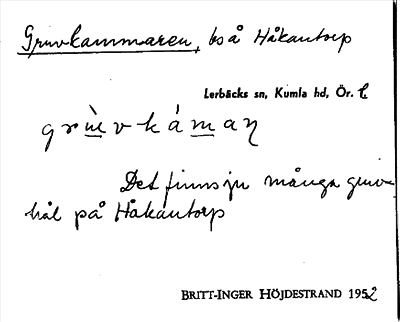 Gruvkammaren, bs å Håkantorp
Lerbäcks sn, Kumla hd, Ör. l.
grùvkámaɳ
Det finns ju många gruv-
hål på Håkantorp
BRITT-INGER HÖJDESTRAND 1952